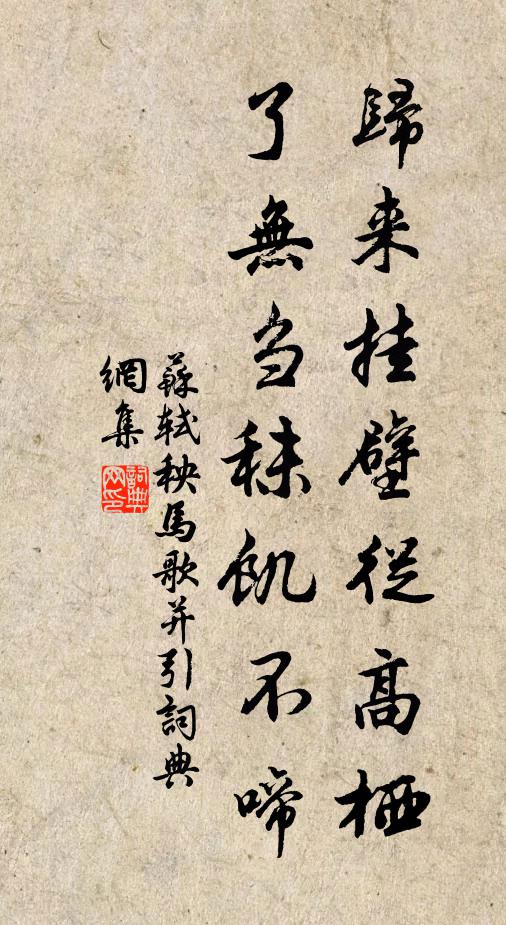 歸来挂壁從高栖
了無刍秣飢不啼
蘇軾秧馬歌并引詞典
網集
詞典
网印